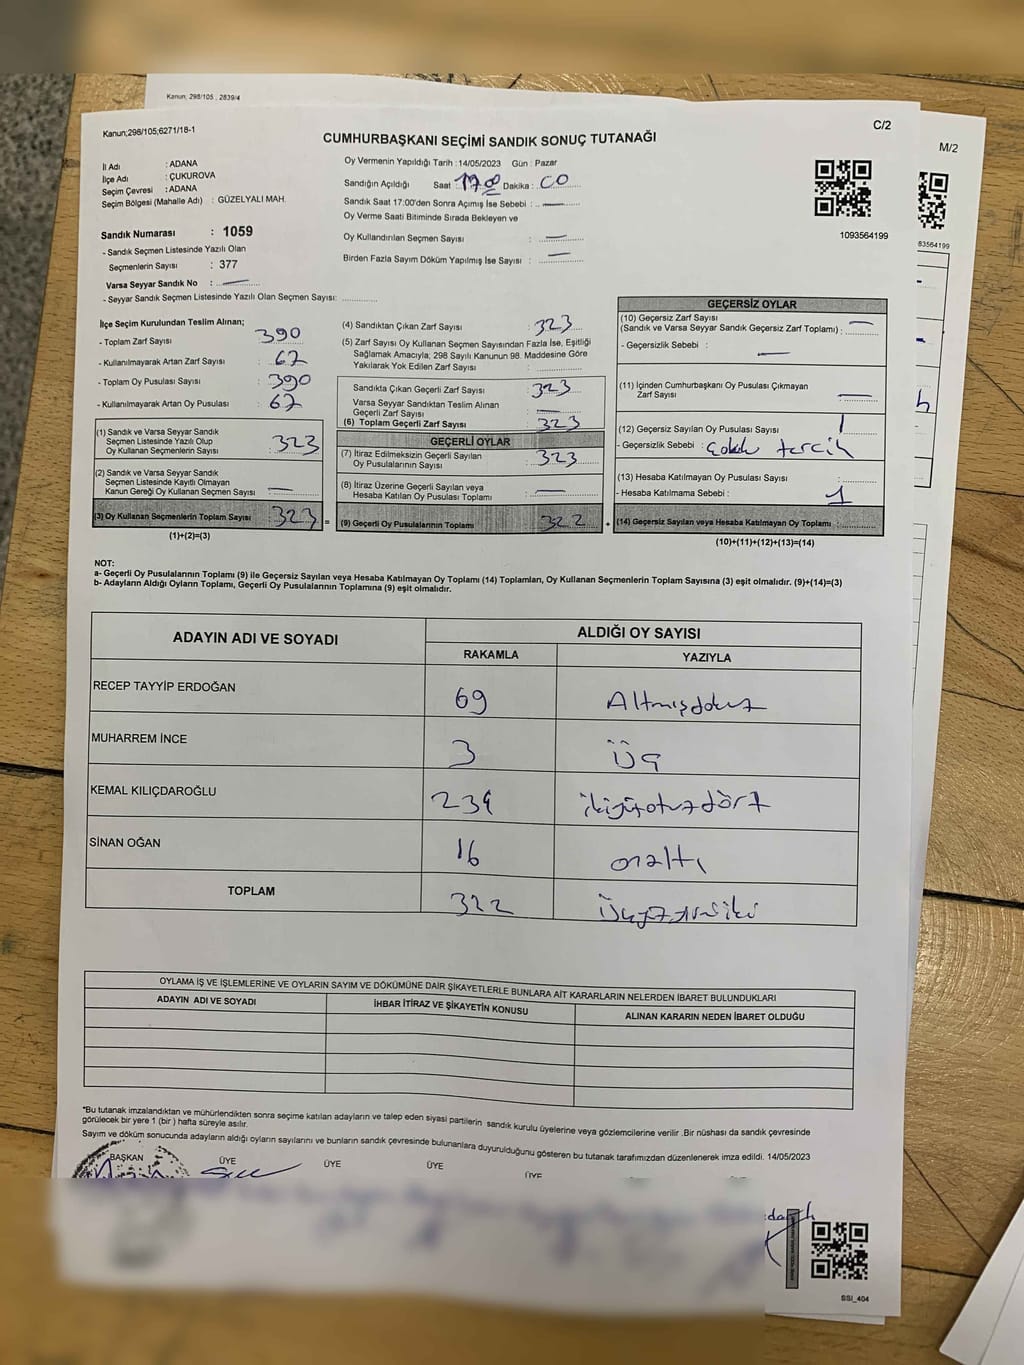 Kanun; 298/105 , 2839/4
Kanun;298/105;6271/18-1
C/2
M/2
CUMHURBAŞKANI SEÇİMİ SANDIK SONUÇ TUTANAĞI
İl Adı : ADANA
İlçe Adı : ÇUKUROVA
Seçim Çevresi : ADANA
Seçim Bölgesi (Mahalle Adı) : GÜZELYALI MAH.
Sandık Numarası : 1059
- Sandık Seçmen Listesinde Yazılı Olan
Seçmenlerin Sayısı : 377
Varsa Seyyar Sandık No : —
- Seyyar Sandık Seçmen Listesinde Yazılı Olan Seçmen Sayısı: ..............
Oy Vermenin Yapıldığı Tarih : 14/05/2023 Gün : Pazar
Sandığın Açıldığı Saat : 17.00 Dakika : 00
Sandık Saat 17:00'den Sonra Açımış İse Sebebi : —
Oy Verme Saati Bitiminde Sırada Bekleyen ve
Oy Kullandırılan Seçmen Sayısı : —
Birden Fazla Sayım Döküm Yapılmış İse Sayısı : —
1093564199
93564199
İlçe Seçim Kurulundan Teslim Alınan;
- Toplam Zarf Sayısı : 390
- Kullanılmayarak Artan Zarf Sayısı : 67
- Toplam Oy Pusulası Sayısı : 390
- Kullanılmayarak Artan Oy Pusulası : 67
(1) Sandık ve Varsa Seyyar Sandık
Seçmen Listesinde Yazılı Olup
Oy Kullanan Seçmenlerin Sayısı : 323
(2) Sandık ve Varsa Seyyar Sandık
Seçmen Listesinde Kayıtlı Olmayan
Kanun Gereği Oy Kullanan Seçmen Sayısı : —
(3) Oy Kullanan Seçmenlerin Toplam Sayısı 323 =
(1)+(2)=(3)
(4) Sandıktan Çıkan Zarf Sayısı : 323
(5) Zarf Sayısı Oy Kullanan Seçmen Sayısından Fazla İse, Eşitliği
Sağlamak Amacıyla, 298 Sayılı Kanunun 98. Maddesine Göre
Yakılarak Yok Edilen Zarf Sayısı : ..............
Sandıkta Çıkan Geçerli Zarf Sayısı : 323
Varsa Seyyar Sandıktan Teslim Alınan
Geçerli Zarf Sayısı : —
(6) Toplam Geçerli Zarf Sayısı : 323
GEÇERLİ OYLAR
(7) İtiraz Edilmeksizin Geçerli Sayılan
Oy Pusulalarının Sayısı : 323
(8) İtiraz Üzerine Geçerli Sayılan veya
Hesaba Katılan Oy Pusulası Toplamı : —
(9) Geçerli Oy Pusulalarının Toplamı 322 +
GEÇERSİZ OYLAR
(10) Geçersiz Zarf Sayısı
(Sandık ve Varsa Seyyar Sandık Geçersiz Zarf Toplamı) : —
- Geçersizlik Sebebi : —
(11) İçinden Cumhurbaşkanı Oy Pusulası Çıkmayan
Zarf Sayısı : —
(12) Geçersiz Sayılan Oy Pusulası Sayısı : 1
- Geçersizlik Sebebi : tercih
(13) Hesaba Katılmayan Oy Pusulası Sayısı :
- Hesaba Katılmama Sebebi : 1
(14) Geçersiz Sayılan veya Hesaba Katılmayan Oy Toplamı : ..............
(10)+(11)+(12)+(13)=(14)
NOT:
a- Geçerli Oy Pusulalarının Toplamı (9) ile Geçersiz Sayılan veya Hesaba Katılmayan Oy Toplamı (14) Toplamları, Oy Kullanan Seçmenlerin Toplam Sayısına (3) eşit olmalıdır. (9)+(14)=(3)
b- Adayların Aldığı Oyların Toplamı, Geçerli Oy Pusulalarının Toplamına (9) eşit olmalıdır.
ADAYIN ADI VE SOYADI ALDIĞI OY SAYISI
RAKAMLA YAZIYLA
RECEP TAYYİP ERDOĞAN 69 Altmışdokuz
MUHARREM İNCE 3 Üç
KEMAL KILIÇDAROĞLU 234 ikiyüzotuzdört
SİNAN OĞAN 16 onaltı
TOPLAM 322 Üçyüzyirmiiki
OYLAMA İŞ VE İŞLEMLERİNE VE OYLARIN SAYIM VE DÖKÜMÜNE DAİR ŞİKAYETLERLE BUNLARA AİT KARARLARIN NELERDEN İBARET BULUNDUKLARI
ADAYIN ADI VE SOYADI İHBAR İTİRAZ VE ŞİKAYETİN KONUSU ALINAN KARARIN NEDEN İBARET OLDUĞU
*Bu tutanak imzalandıktan ve mühürlendikten sonra seçime katılan adayların ve talep eden siyasi partilerin sandık kurulu üyelerine veya gözlemcilerine verilir .Bir nüshası da sandık çevresinde
görülecek bir yere 1 (bir ) hafta süreyle asılır.
Sayım ve döküm sonucunda adayların aldığı oyların sayılarını ve bunların sandık çevresinde bulunanlara duyurulduğunu gösteren bu tutanak tarafımızdan düzenlenerek imza edildi. 14/05/2023
BAŞKAN ÜYE ÜYE ÜYE ÜYE
SSI_404